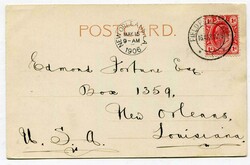 POSTCARD.
NEW ORLEANS, LA
MAR 15
9-AM
1906
Edmond Fortune Esq
Box 1359,
New Orleans,
Louisiana
U.S.A